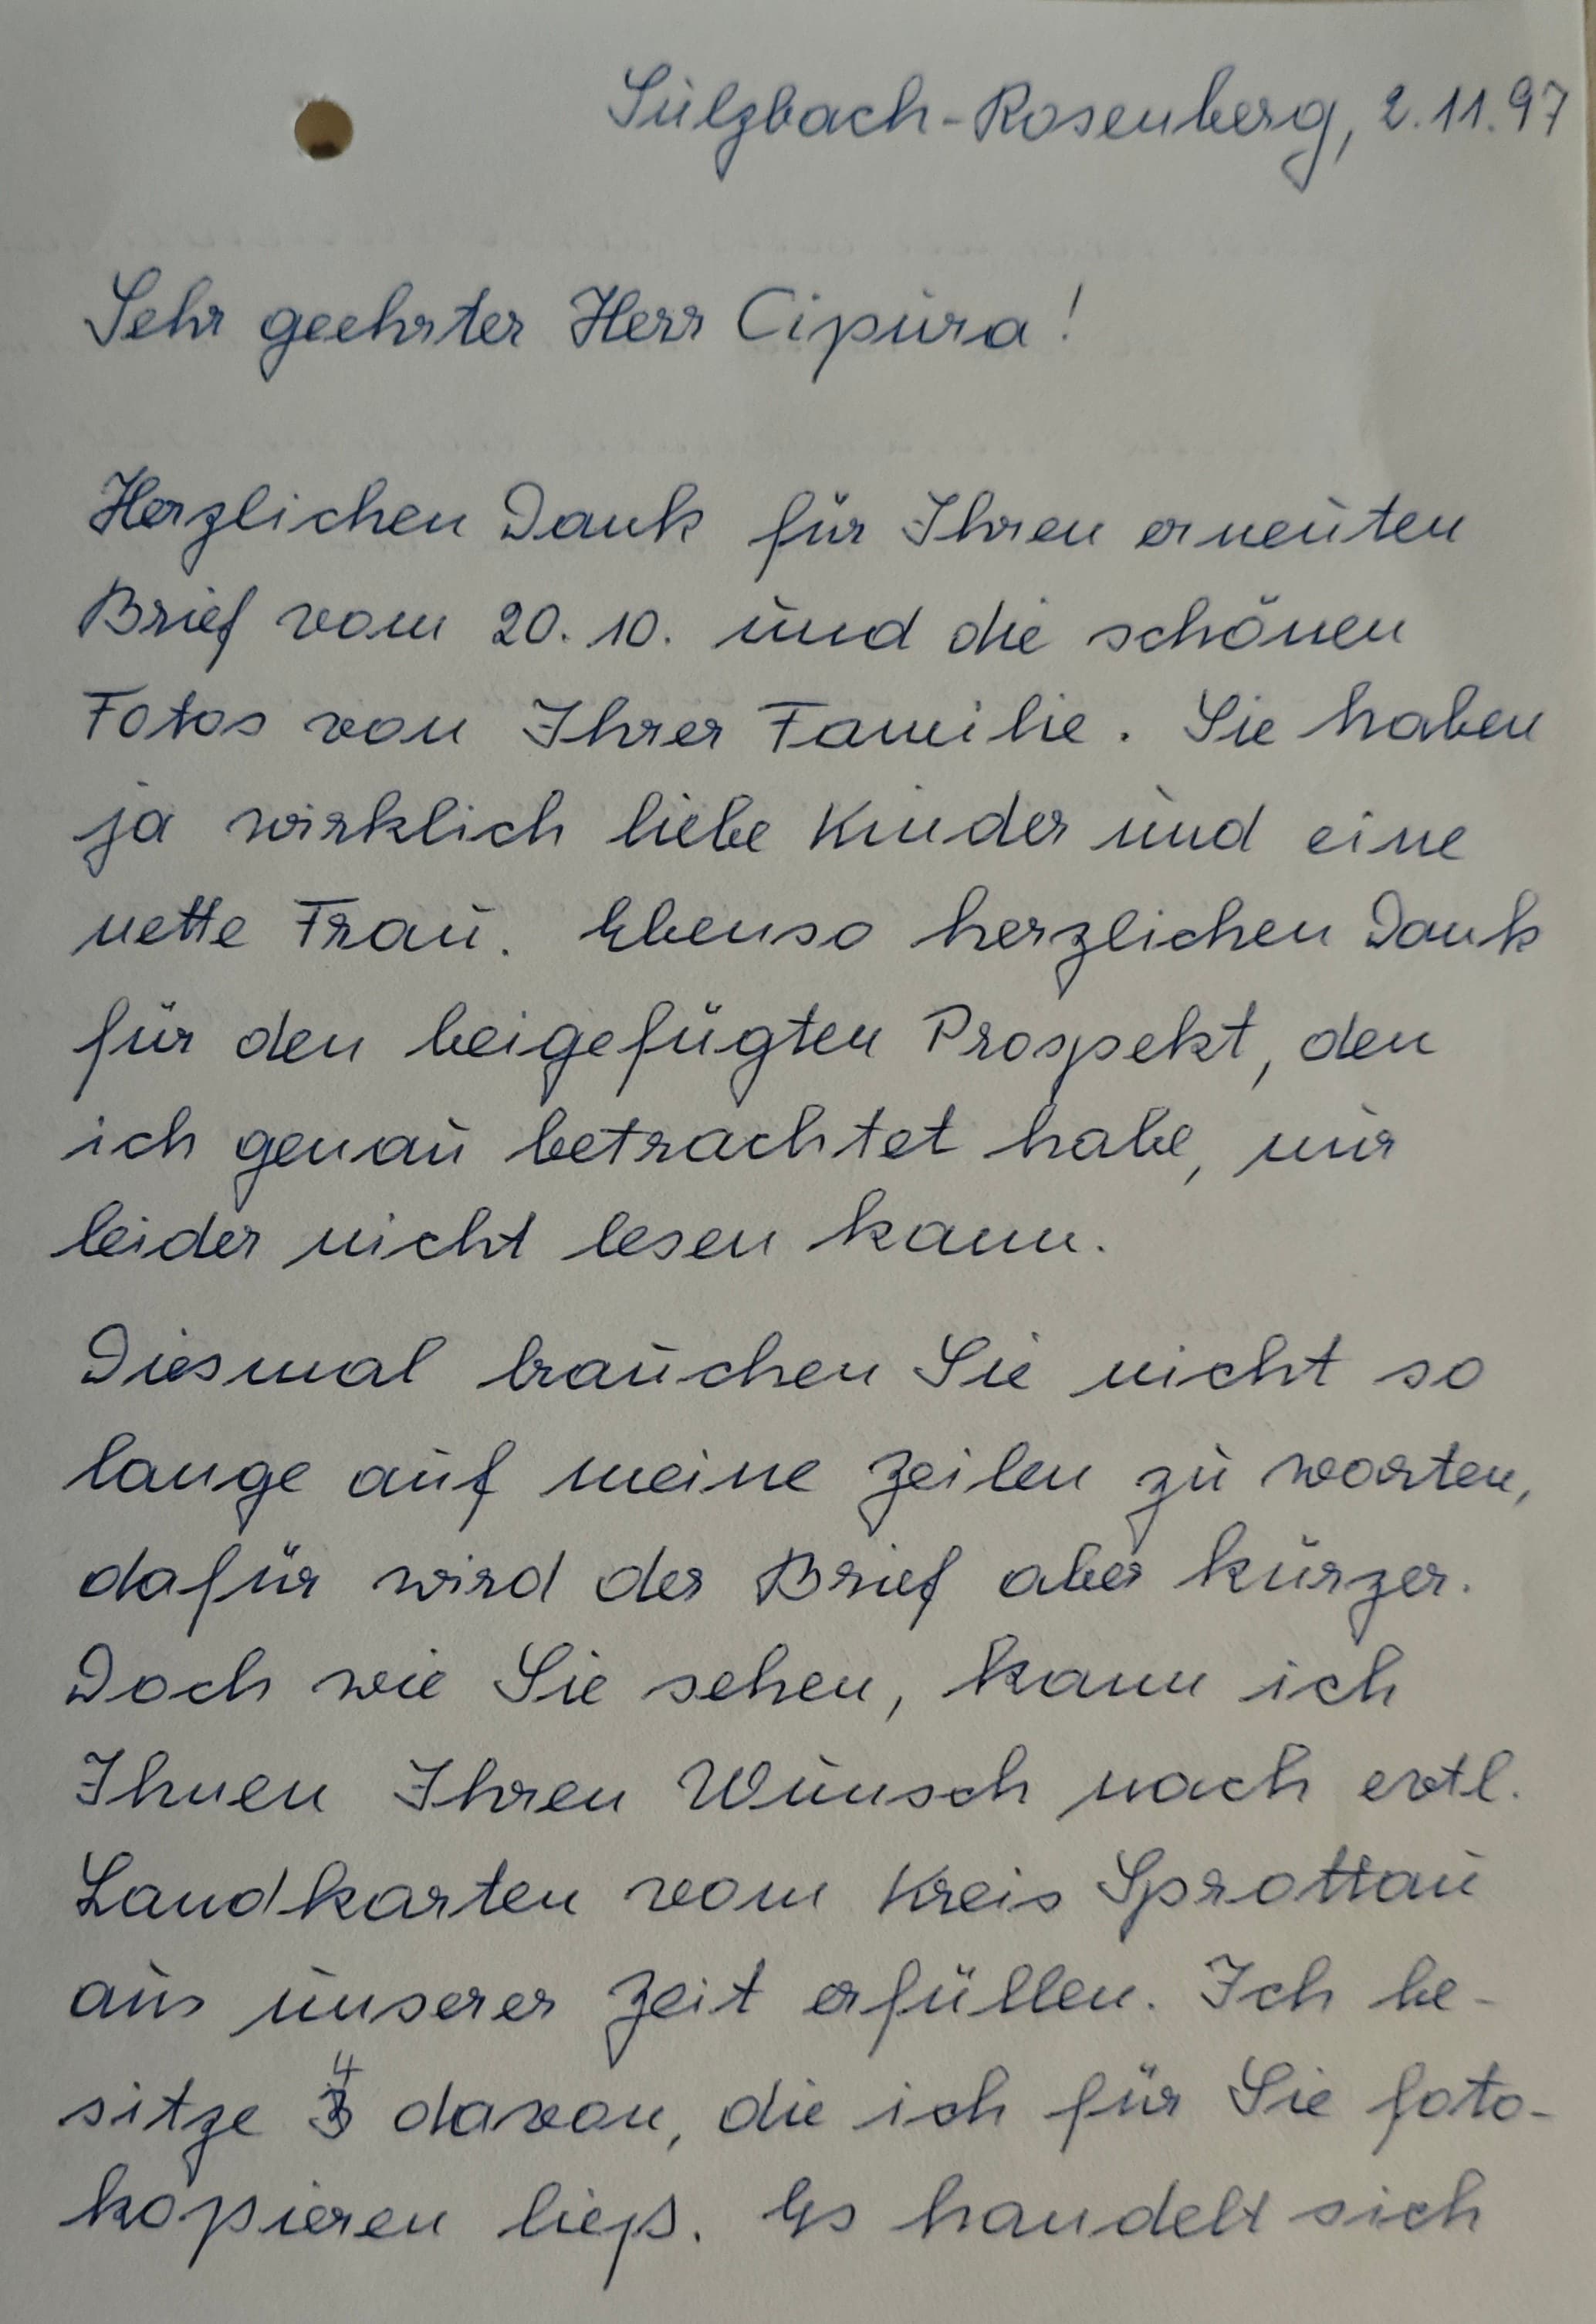 Sulzbach-Rosenberg, 2.11.97
Sehr geehrter Herr Cipura!
Herzlichen Dank für Ihren erneuten
Brief vom 20.10. und die schönen
Fotos von Ihrer Familie. Sie haben
ja wirklich liebe Kinder und eine
nette Frau. Ebenso herzlichen Dank
für den beigefügten Prospekt, den
ich genau betrachtet habe, nur
leider nicht lesen kann.
Diesmal brauchen Sie nicht so
lange auf meine Zeilen zu warten,
dafür wird der Brief aber kürzer.
Doch wie Sie sehen, kann ich
Ihnen Ihren Wunsch nach evtl.
Landkarten vom Kreis Sprottau
aus unserer Zeit erfüllen. Ich be-
sitze 4 davon, die ich für Sie foto-
kopieren ließ. Es handelt sich